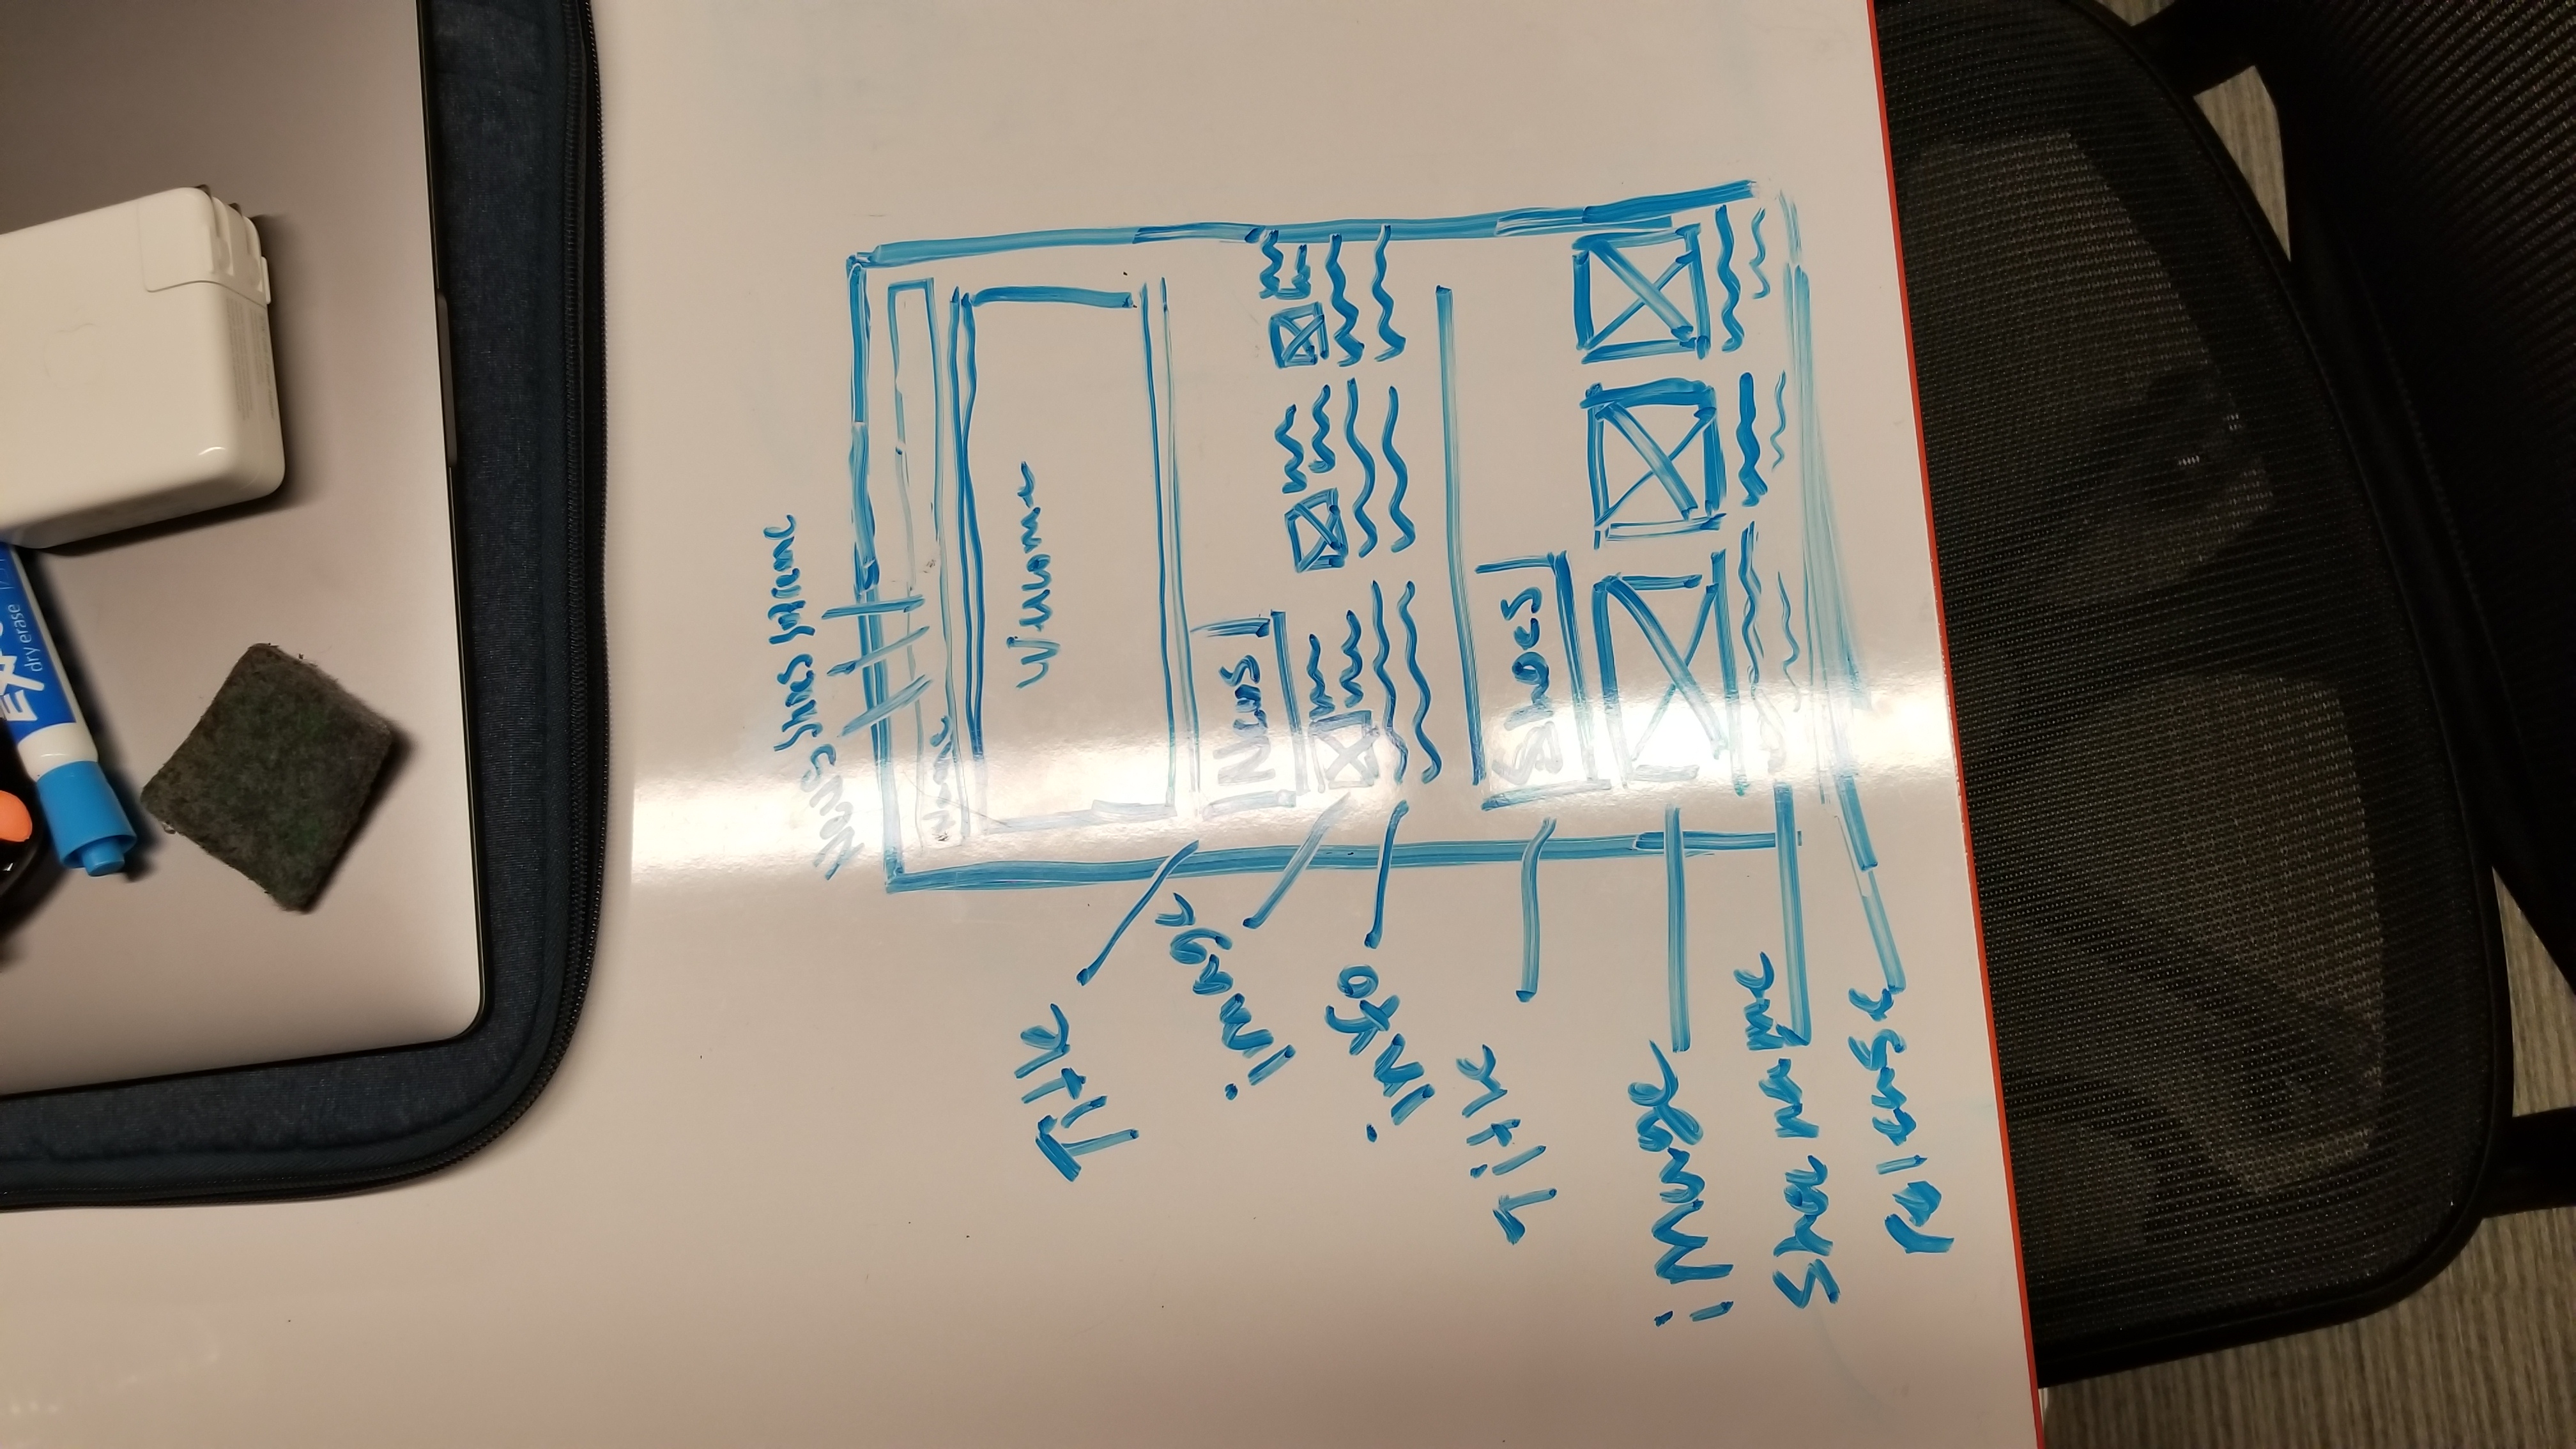 EXPO
dry erase
News Shoes Supreme
Name
Welcome
Title
News
image
info
Title
Shoes
image
Shoe name
release